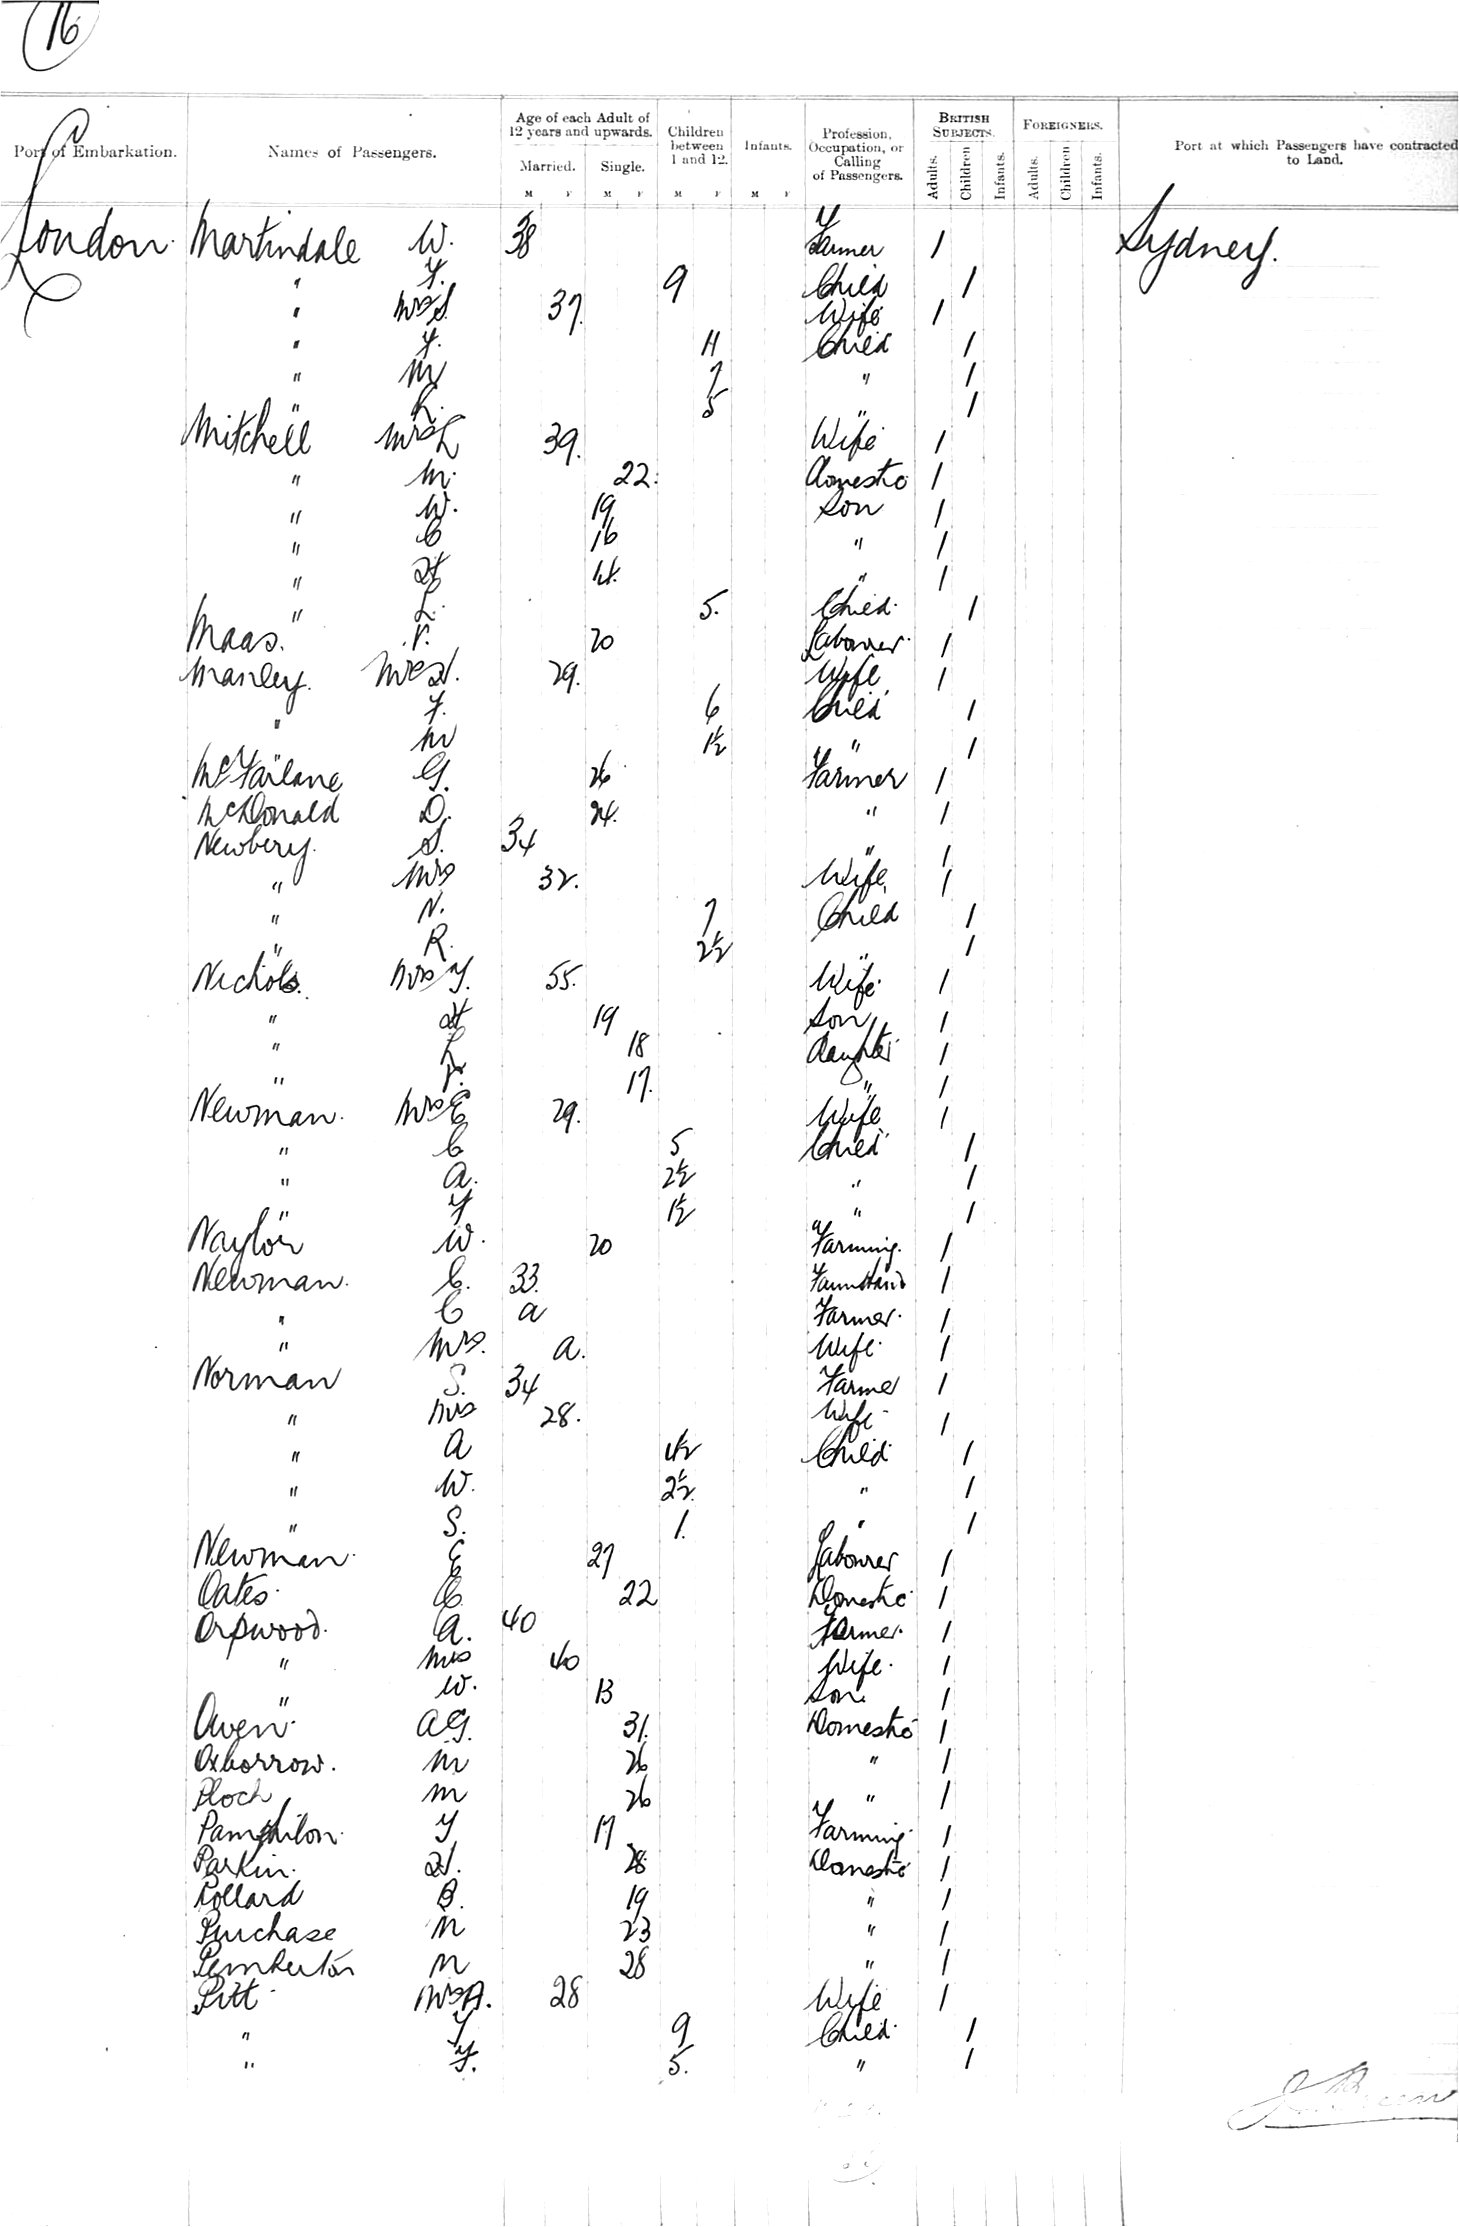 16
Port of Embarkation. Names of Passengers. Age of each Adult of 12 years and upwards. Children between 1 and 12. Infants. Profession, Occupation, or Calling of Passengers. BRITISH SUBJECTS. FOREIGNERS. Port at which Passengers have contracted to Land.
Married. Single. Adults. Children Infants. Adults. Children Infants.
M F M F M F M F
London. Martindale W. 38 Farmer 1 Sydney.
" F. 9 Child 1
" Mrs S. 37. Wife 1
" F. 11 Child 1
" M 7 " 1
" K. 5 " 1
Mitchell Mrs L 39. Wife 1
" M. 22. Domestic 1
" W. 19 Son 1
" C 16 " 1
" H 14. " 1
" L. 5. Child. 1
Maas. V. 20 Labourer. 1
Manley. Mrs H. 29. Wife 1
" F. 6 Child 1
" M 1½ " 1
McFarlane G. 26 Farmer 1
McDonald D. 24. " 1
Newbery. S. 34 " 1
" Mrs 32. Wife 1
" N. 7 Child 1
" R. 2½ " 1
Nichols. Mrs J. 55. Wife. 1
" H 19 Son 1
" L 18 Daughter 1
" F. 17. " 1
Newman. Mrs E 29. Wife 1
" C 5 Child 1
" A. 2½ " 1
" F 1½ " 1
Naylor W. 20 Farming. 1
Newman. C. 33. Farmhand 1
" C a Farmer. 1
" Mrs. a. Wife. 1
Norman S. 34 Farmer 1
" Mrs 28. Wife 1
" A 4½ Child 1
" W. 2½ " 1
" S. 1. " 1
Newman. E 27 Labourer 1
Oates. C. 22 Domestic 1
Orpwood. A. 40 Farmer. 1
" Mrs 40 Wife. 1
" W. 13 Son. 1
Owen. A G. 31. Domestic 1
Oxborrow. M 26 " 1
Ploch M 26 " 1
Pamphilon. J 17 Farming. 1
Parkin. H. 28. Domestic 1
Pollard B. 19 " 1
Purchase M 23 " 1
Pemberton M 28 " 1
Pitt. Mrs A. 28 Wife 1
" J 9 Child. 1
" F. 5. " 1